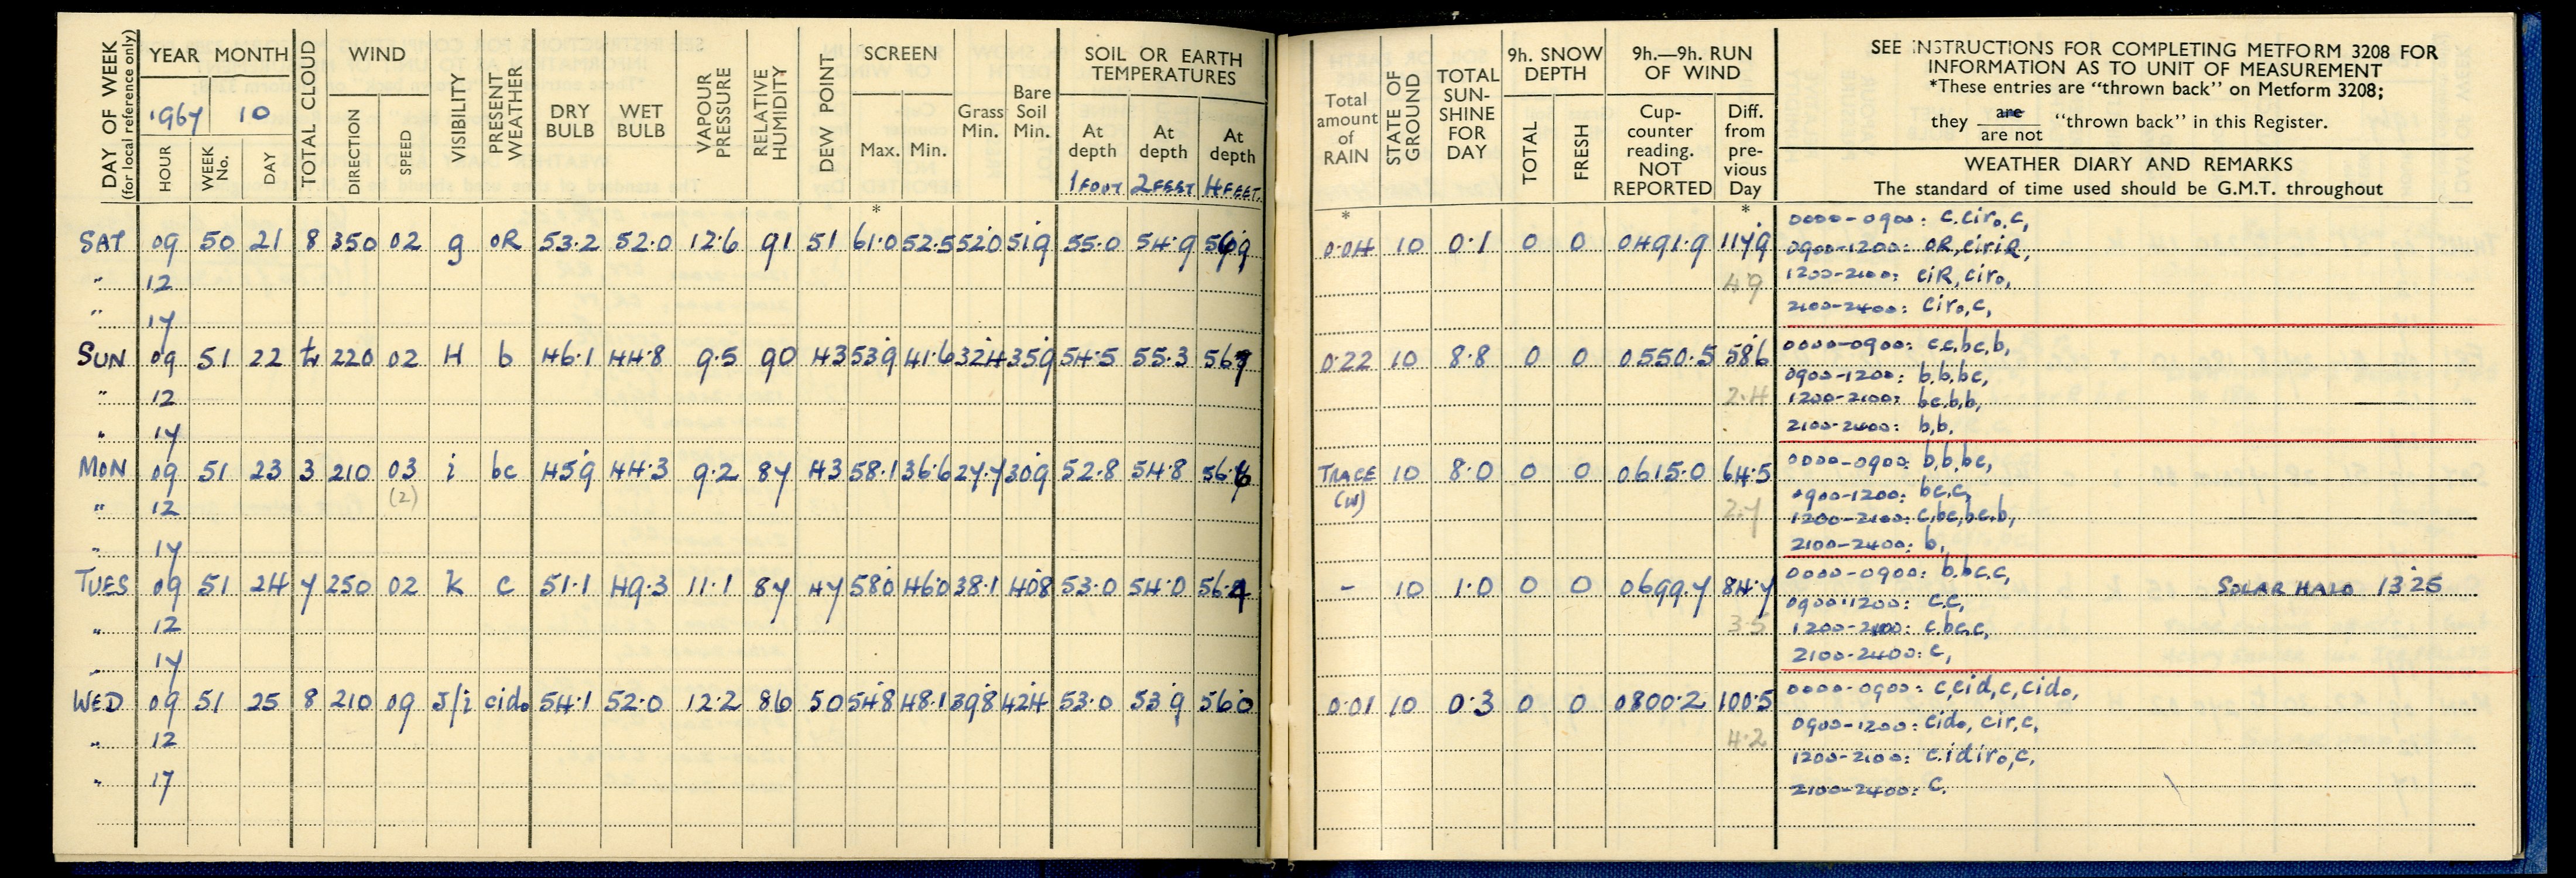 DAY OF WEEK (for local reference only)
YEAR MONTH
1967 10
HOUR WEEK No. DAY
TOTAL CLOUD
WIND
DIRECTION SPEED
VISIBILITY
PRESENT WEATHER
DRY BULB
WET BULB
VAPOUR PRESSURE
RELATIVE HUMIDITY
DEW POINT
SCREEN
Max. Min.
Grass Min.
Bare Soil Min.
SOIL OR EARTH TEMPERATURES
At depth At depth At depth
1 FOOT 2 FEET 4 FEET.
*
SAT 09 50 21 8 350 02 g oR 53.2 52.0 12.6 91 51 61.0 52.5 52.0 51.9 55.0 54.9
" 12
" 17
SUN 09 51 22 220 02 H b 46.1 44.8 9.5 90 43 53.9 41.6 32.4 35.9 54.5 55.3
" 12
" 17
MON 09 51 23 3 210 03 i bc 45.9 44.3 9.2 87 43 58.1 36.6 27.7 30.9 52.8 54.8
(2)
" 12
" 17
TUES 09 51 24 7 250 02 k c 51.1 49.3 11.1 87 47 58.0 46.0 38.1 40.8 53.0 54.0 56.4
" 12
" 17
WED 09 51 25 8 210 09 J/i cido 54.1 52.0 12.2 86 50 54.8 48.1 39.8 42.4 53.0 53.9 56.0
" 12
" 17
Total amount of RAIN
STATE OF GROUND
TOTAL SUN-SHINE FOR DAY
9h. SNOW DEPTH
TOTAL FRESH
9h.—9h. RUN OF WIND
Cup-counter reading. NOT REPORTED
Diff. from pre-vious Day
SEE INSTRUCTIONS FOR COMPLETING METFORM 3208 FOR
INFORMATION AS TO UNIT OF MEASUREMENT
*These entries are "thrown back" on Metform 3208;
they are / are not "thrown back" in this Register.
WEATHER DIARY AND REMARKS
The standard of time used should be G.M.T. throughout
* *
0.04 10 0.1 0 0 0491.9 117.9
4.9
0000-0900: c.ciro,c,
0900-1200: oR,ciriR,
1200-2100: ciR,ciro,
2100-2400: ciro,c,
0.22 10 8.8 0 0 0550.5 58.6
2.4
0000-0900: c.c,bc,b,
0900-1200: b.b.bc,
1200-2100: bc.b.b,
2100-2400: b,b,
TRACE 10 8.0 0 0 0615.0 64.5
(W)
2.7
0000-0900: b,b,bc,
0900-1200: bc.c,
1200-2100: c,bc,bc.b,
2100-2400: b,
- 10 1.0 0 0 0699.7 84.7
3.5
0000-0900: b.bc.c,
SOLAR HALO 13.25
0900-1200: c.c,
1200-2100: c.bc.c,
2100-2400: c,
0.01 10 0.3 0 0 0800.2 100.5
4.2
0000-0900: c,cid,c,cido,
0900-1200: cido, cir,c,
1200-2100: c.idiro,c,
2100-2400: c.